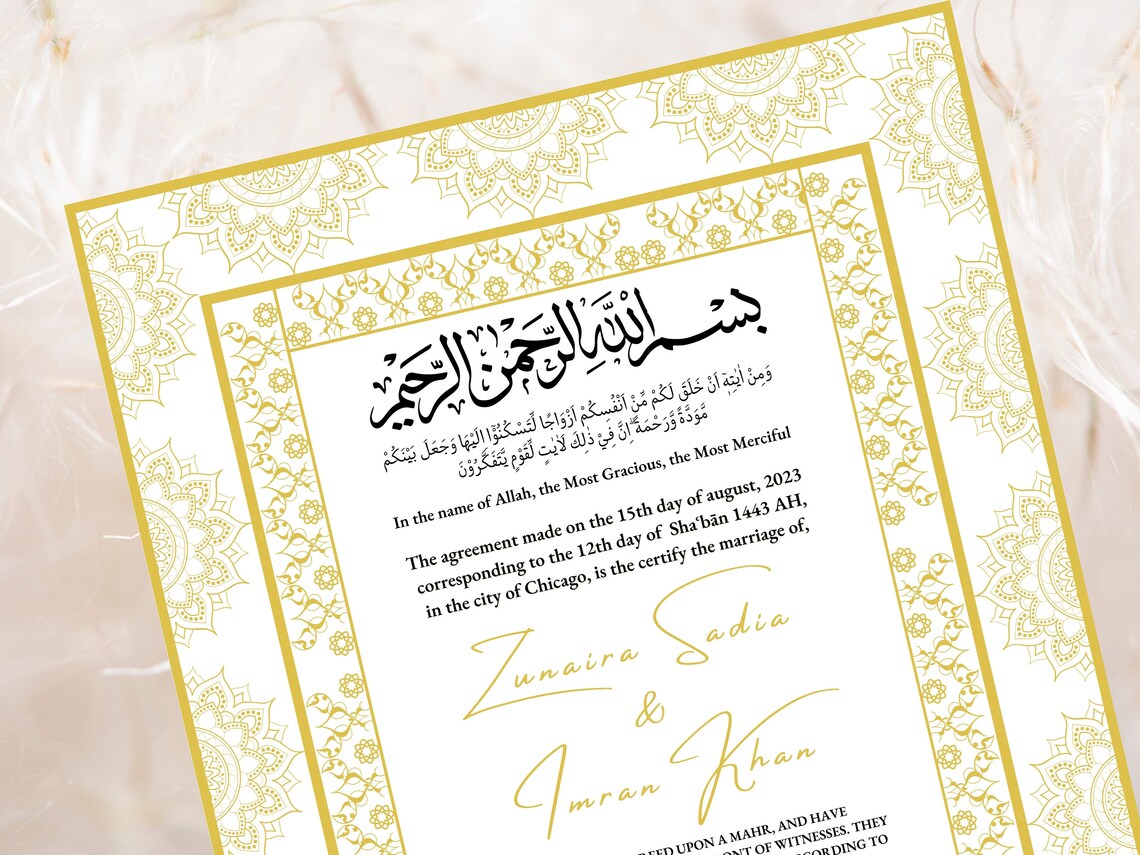 بِسْمِ اللَّهِ الرَّحْمَنِ الرَّحِيمِ
وَمِنْ اٰيٰتِهٖٓ اَنْ خَلَقَ لَكُمْ مِّنْ اَنْفُسِكُمْ اَزْوَاجًا لِّتَسْكُنُوْٓا اِلَيْهَا وَجَعَلَ بَيْنَكُمْ
مَّوَدَّةً وَّرَحْمَةً ۗاِنَّ فِيْ ذٰلِكَ لَاٰيٰتٍ لِّقَوْمٍ يَّتَفَكَّرُوْنَ
In the name of Allah, the Most Gracious, the Most Merciful
The agreement made on the 15th day of august, 2023
corresponding to the 12th day of Shaʿbān 1443 AH,
in the city of Chicago, is the certify the marriage of,
Zunaira Sadia
&
Imran Khan
UPON A MAHR, AND HAVE
OF WITNESSES. THEY
TO